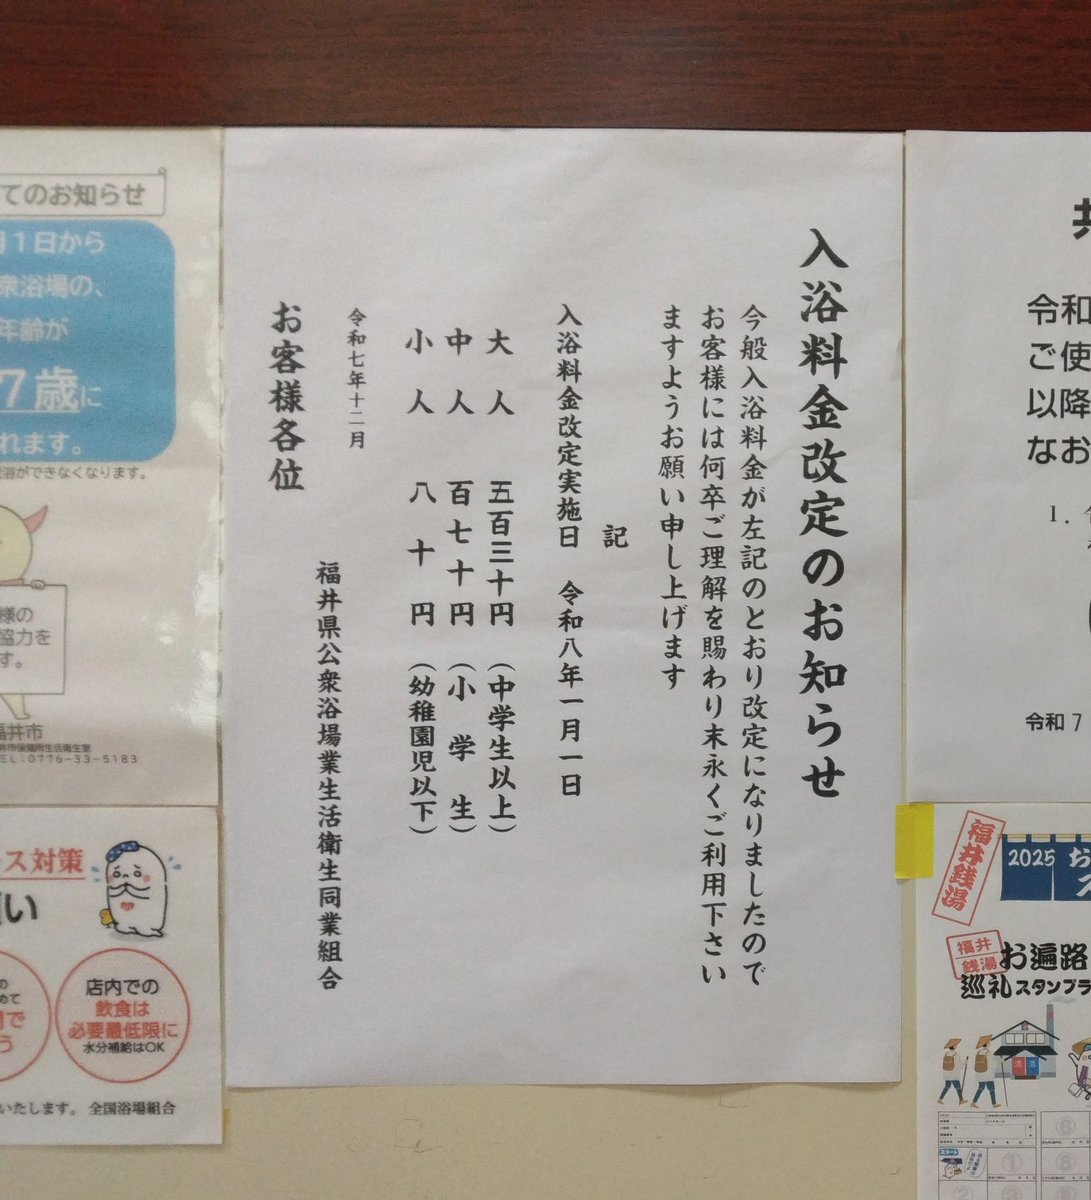 入浴料金改定のお知らせ
今般入浴料金が左記のとおり改定になりましたので
お客様には何卒ご理解を賜わり末永くご利用下さい
ますようお願い申し上げます
記
入浴料金改定実施日　令和八年一月一日
大人　五百三十円（中学生以上）
中人　百七十円（小学生）
小人　八十円（幼稚園児以下）
令和七年十二月
福井県公衆浴場業生活衛生同業組合
お客様各位
てのお知らせ
月1日から
衆浴場の、
年齢が
7歳に
れます。
浴ができなくなります。
様の
協力を
す。
福井市
井市保健所生活衛生室
TEL:0776-33-5183
ス対策
い
店内での
飲食は
必要最低限に
水分補給はOK
いたします。 全国浴場組合
共
令和
ご使
以降
なお
1.
令和7
福井銭湯
2025
お
ス
福井
銭湯
お遍路
巡礼スタンプラ